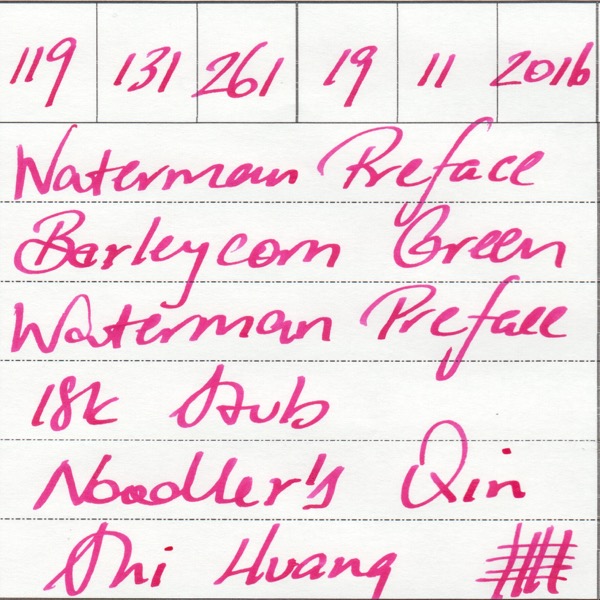 119 131 261 19 11 2016
Waterman Preface
Barleycorn Green
Waterman Preface
18k Stub
Noodler's Qin
Shi Huang